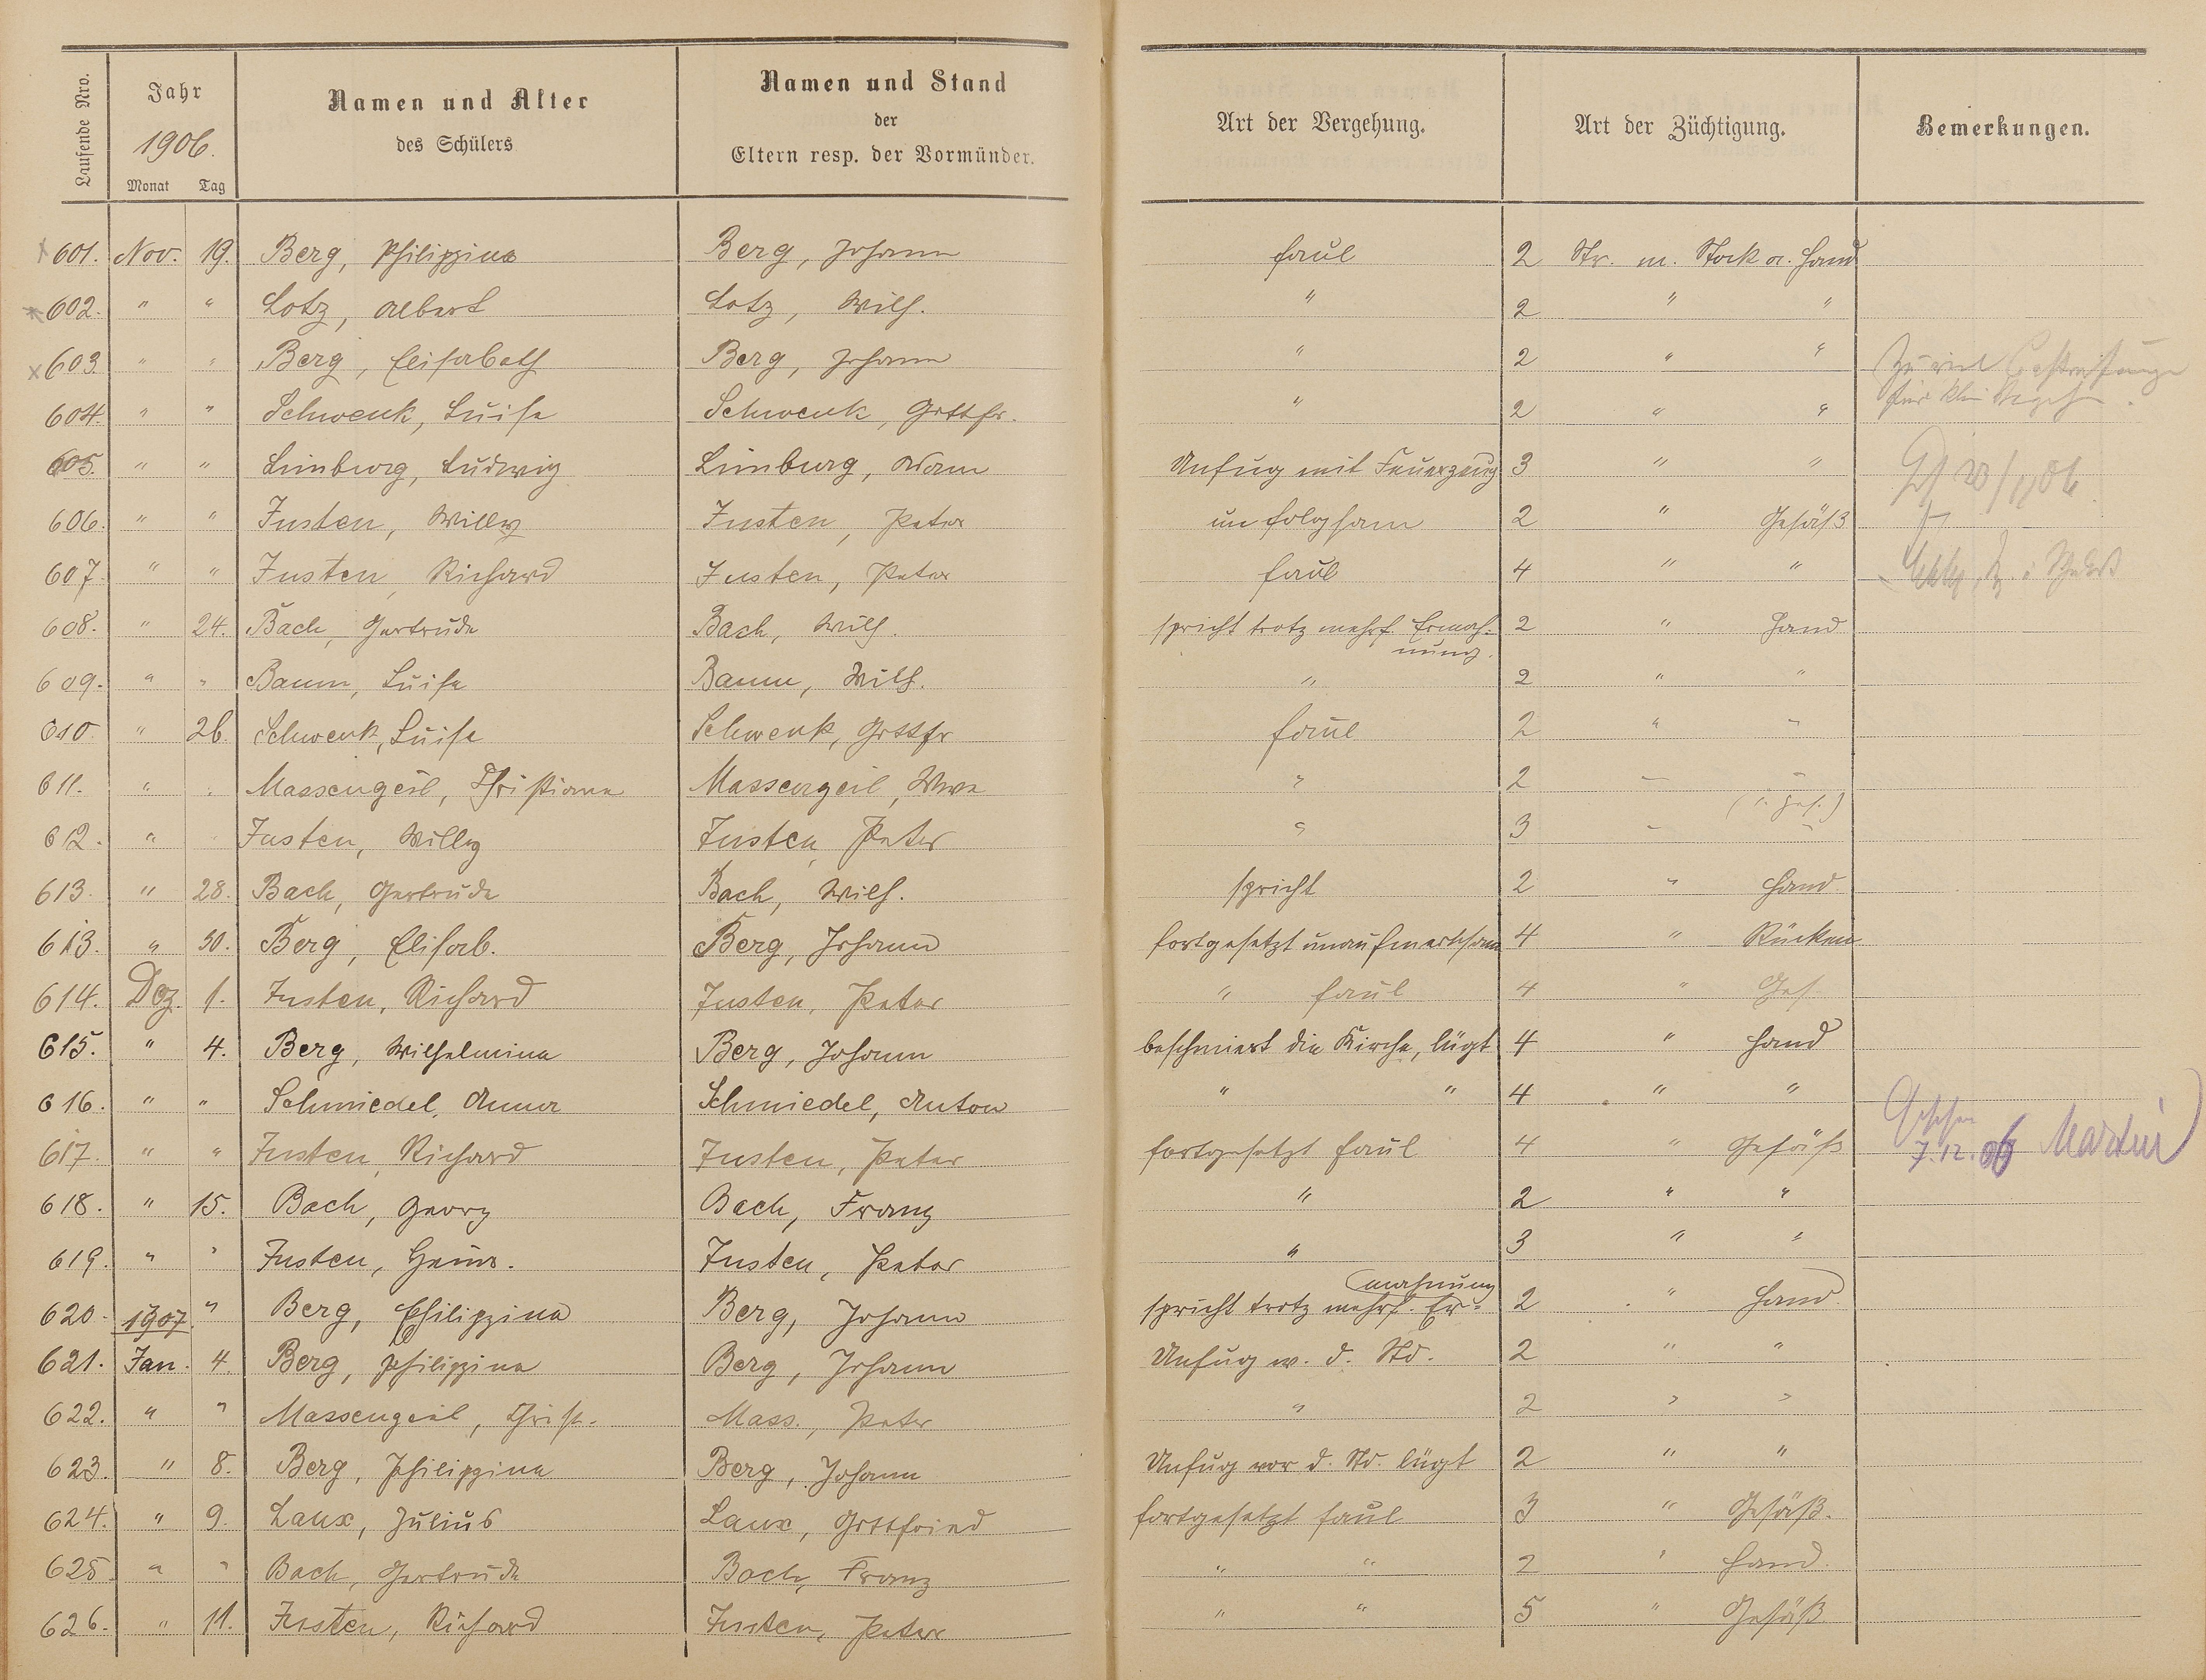 Laufende Nro.
Jahr
1906.
Monat Tag
Namen und Alter
des Schülers
Namen und Stand
der
Eltern resp. der Vormünder.
Art der Vergehung.
Art der Züchtigung.
Bemerkungen.
601. Nov. 19. Berg, Philippina Berg, Johann faul 2 Str. m. Stock a. Hand
602. " " Lotz, Albert Lotz, Wilh. " 2 " "
603 " " Berg, Elisabeth Berg, Johann " 2 " " Zu viel Bestrafungen
604. " " Schwenk, Luise Schwenk, Gottfr. " 2 " " für klein
605. " " Limburg, Ludwig Limburg, Adam Unfug mit Feuerzeug 3 " "
606. " " Justen, Willy Justen, Peter unfolgsam 2 " Gesäß
607. " " Justen, Richard Justen, Peter faul 4 " "
608. " 24. Bach, Gertrude Bach, Wilh. spricht trotz mehrf. Ermah- 2 " Hand
nung.
609. " " Baum, Luise Baum, Wilh. " 2 " "
610. " 26. Schwenk, Luise Schwenk, Gottfr faul 2 " "
611. " " Massengeil, Christiana Massengeil, Wwe " 2 " "
612. " " Justen, Willy Justen Peter " 3 " "
613. " 28. Bach, Gertrude Bach, Wilh. spricht 2 " Hand
613. " 30. Berg, Elisab. Berg, Johann fortgesetzt unaufmerksam 4 " Rücken
614. Dez. 1. Justen, Richard Justen, Peter " faul 4 " Ges.
615. " 4. Berg, Wilhelmina Berg, Johann beschmiert die Kirche, lügt 4 " Hand
616. " " Schmiedel, Anna Schmiedel, Anton " " 4 " "
617. " " Justen, Richard Justen, Peter fortgesetzt faul 4 " Gesäß Gesehen
7.12.06 Martin
618. " 15. Bach, Georg Bach, Franz " 2 " "
619. " " Justen, Heinr. Justen, Peter " 3 " "
mahnung
620. " Berg, Philippina Berg, Johann spricht trotz mehrf. Er- 2 " Hand.
1907.
621. Jan. 4. Berg, Philippina Berg, Johann Unfug w. d. Std. 2 " "
622. " " Massengeil, Christ. Mass., Peter " 2 " "
623. " 8. Berg, Philippina Berg, Johann Unfug vor d. Std. lügt 2 " "
624. " 9. Laux, Julius Laux, Gottfried fortgesetzt faul 3 " Gesäß.
625 " " Bach, Gertrude Bach, Franz " " 2 " Hand.
626. " 11. Justen, Richard Justen, Peter " " 5 " Gesäß